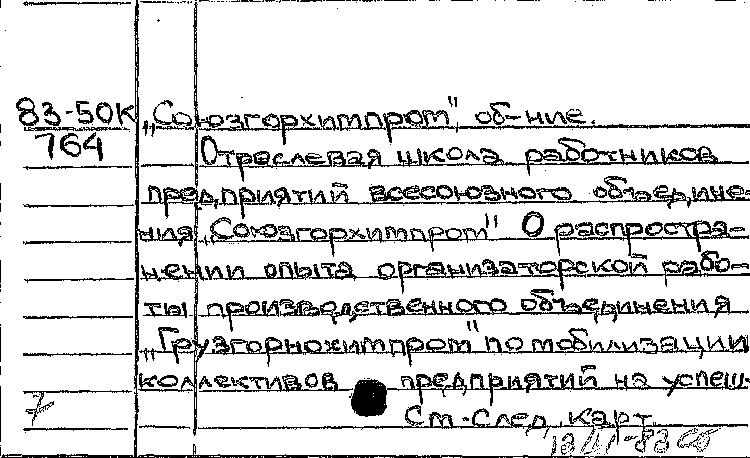 83-50К „Союзгорхимпром", об-ние.
764 Отраслевая школа работников
предприятий всесоюзного объедине-
ния „Союзгорхимпром" О распростра-
нении опыта организаторской рабо-
ты производственного объединения
„Грузгорнохимпром" по мобилизации
коллективов предприятий на успеш-
7 См.след.карт.